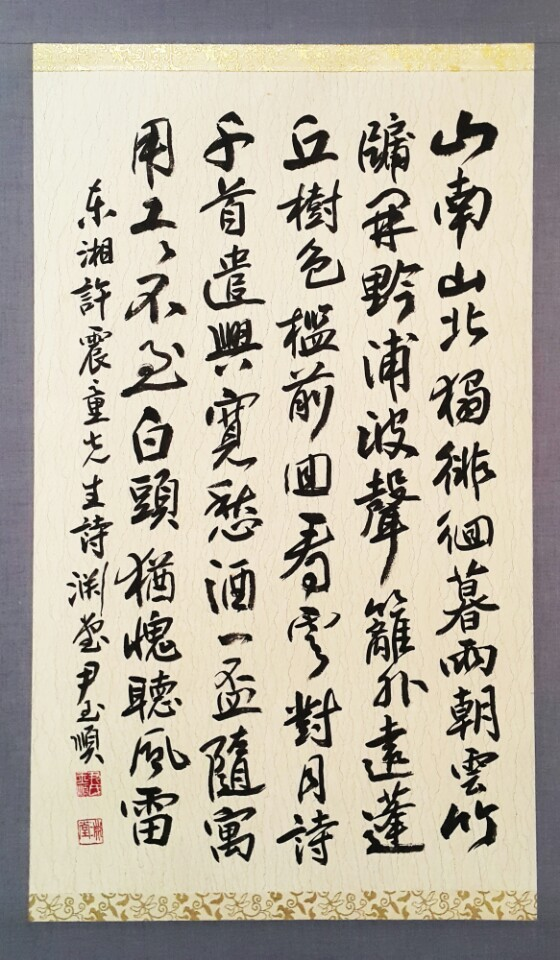 山南山北獨徘徊暮雨朝雲竹
牖開黔浦波聲籬外遠蓬
丘樹色檻前回看雲對月詩
千首遣興寬愁酒一盃隨寓
用工々不至白頭猶愧聽風雷
東湘許震童先生詩 渊堂尹玉順